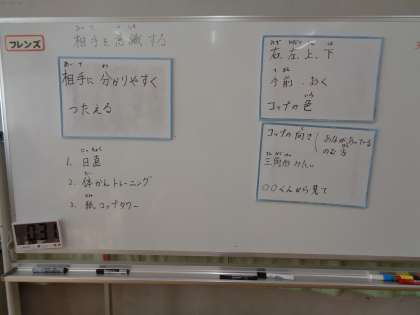 フレンズ
相手を意識する
相手に分かりやすく
つたえる
1. 日直
2. 体かんトレーニング
3. 紙コップタワー
右、左、上、下
手前、おく
コップの色
コップの向き
あながあいている
のむ方
三角形みたい
○○くんから見て